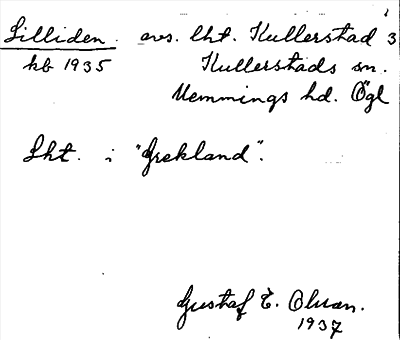 Lilliden. avs. lht. Kullerstad 3
kb 1935 Kullerstads sn.
Memmings hd. Ögl
Lht. i "Grekland".
Gustaf E. Olson.
1937